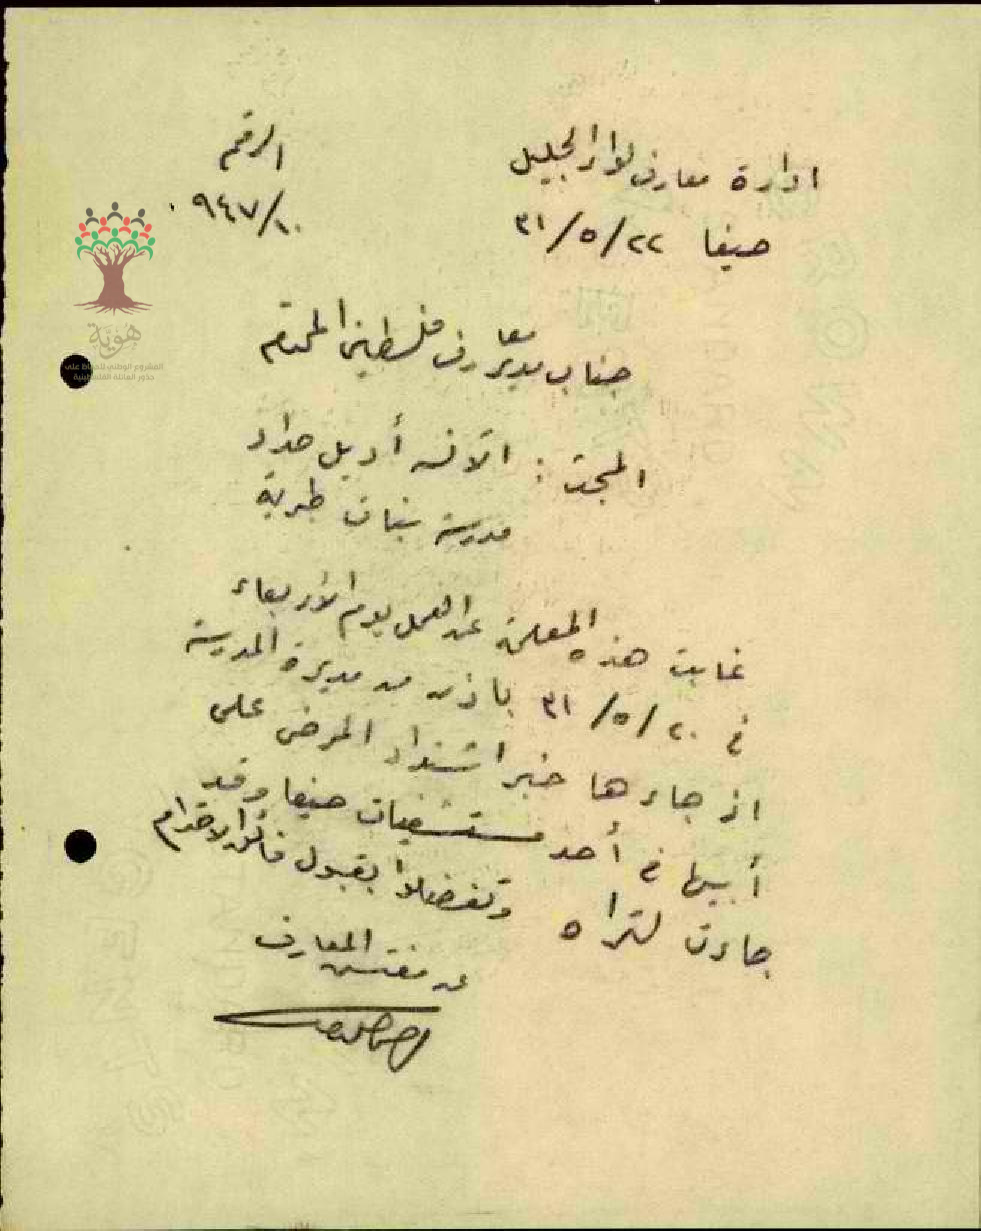 ادارة معارف لواء الجليل
الرقم
حيفا ٢٢/٥/٣١
٩٤٧/١٠
هوية
المشروع الوطني للحفاظ على
جذور العائلة الفلسطينية
جناب مدير معارف فلسطين المحترم
المبحث : الآنسه أديل حداد
مدرسة بنات طبرية
غابت هذه المعلمة عن العمل يوم الأربعاء
في ٢٠/٥/٣١ باذن من مديرة المدرسة
اذ جاءها خبر اشتداد المرض على
أبيها في أحد مستشفيات حيفا وقد
جاءت لتراه وتفضلوا بقبول فائق الاحترام
عن مفتش المعارف